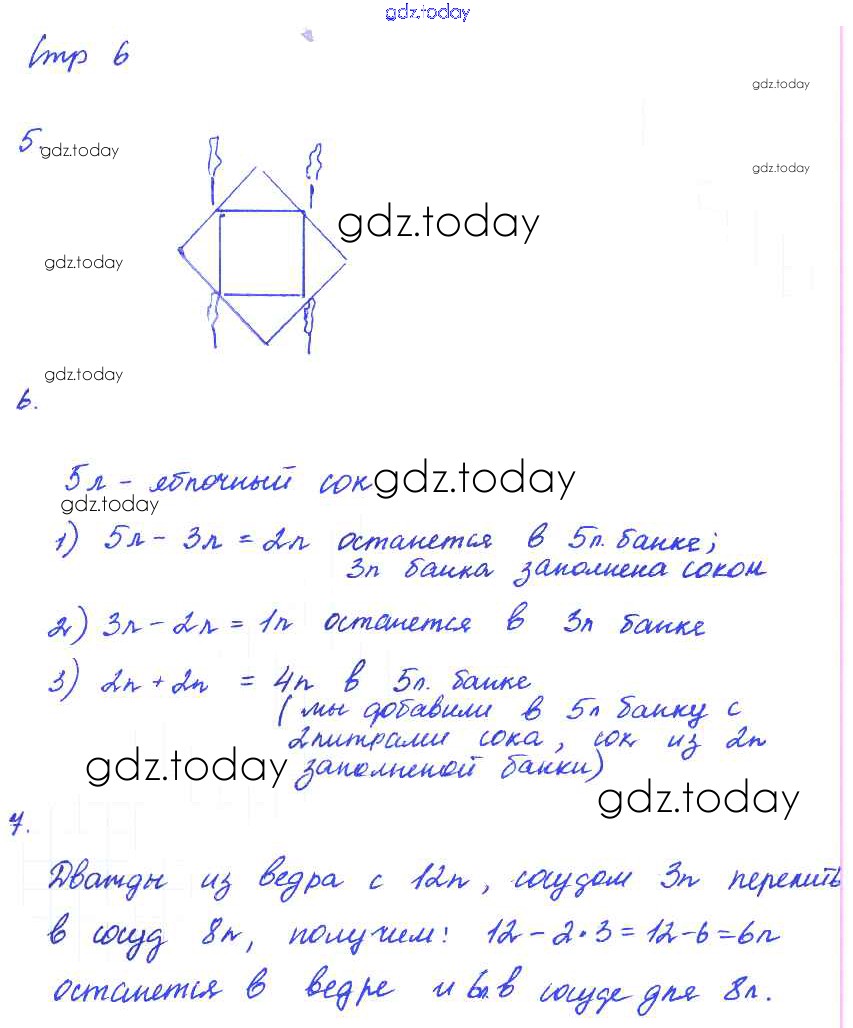 gdz.today
Стр 6
gdz.today
5.
gdz.today
gdz.today
gdz.today
gdz.today
gdz.today
6.
5л - яблочный сок gdz.today
gdz.today
1) 5л - 3л = 2л останется в 5л. банке;
3л банка заполнена соком
2) 3л - 2л = 1л останется в 3л банке
3) 2л + 2л = 4л в 5л. банке
(мы добавили в 5л банку с
2литрами сока, сок из 2л
gdz.today заполненой банки)
gdz.today
7.
Дважды из ведра с 12л, сосудом 3л перелить
в сосуд 8л, получим: 12 - 2 · 3 = 12 - 6 = 6л
останется в ведре и 6л. в сосуде для 8л.